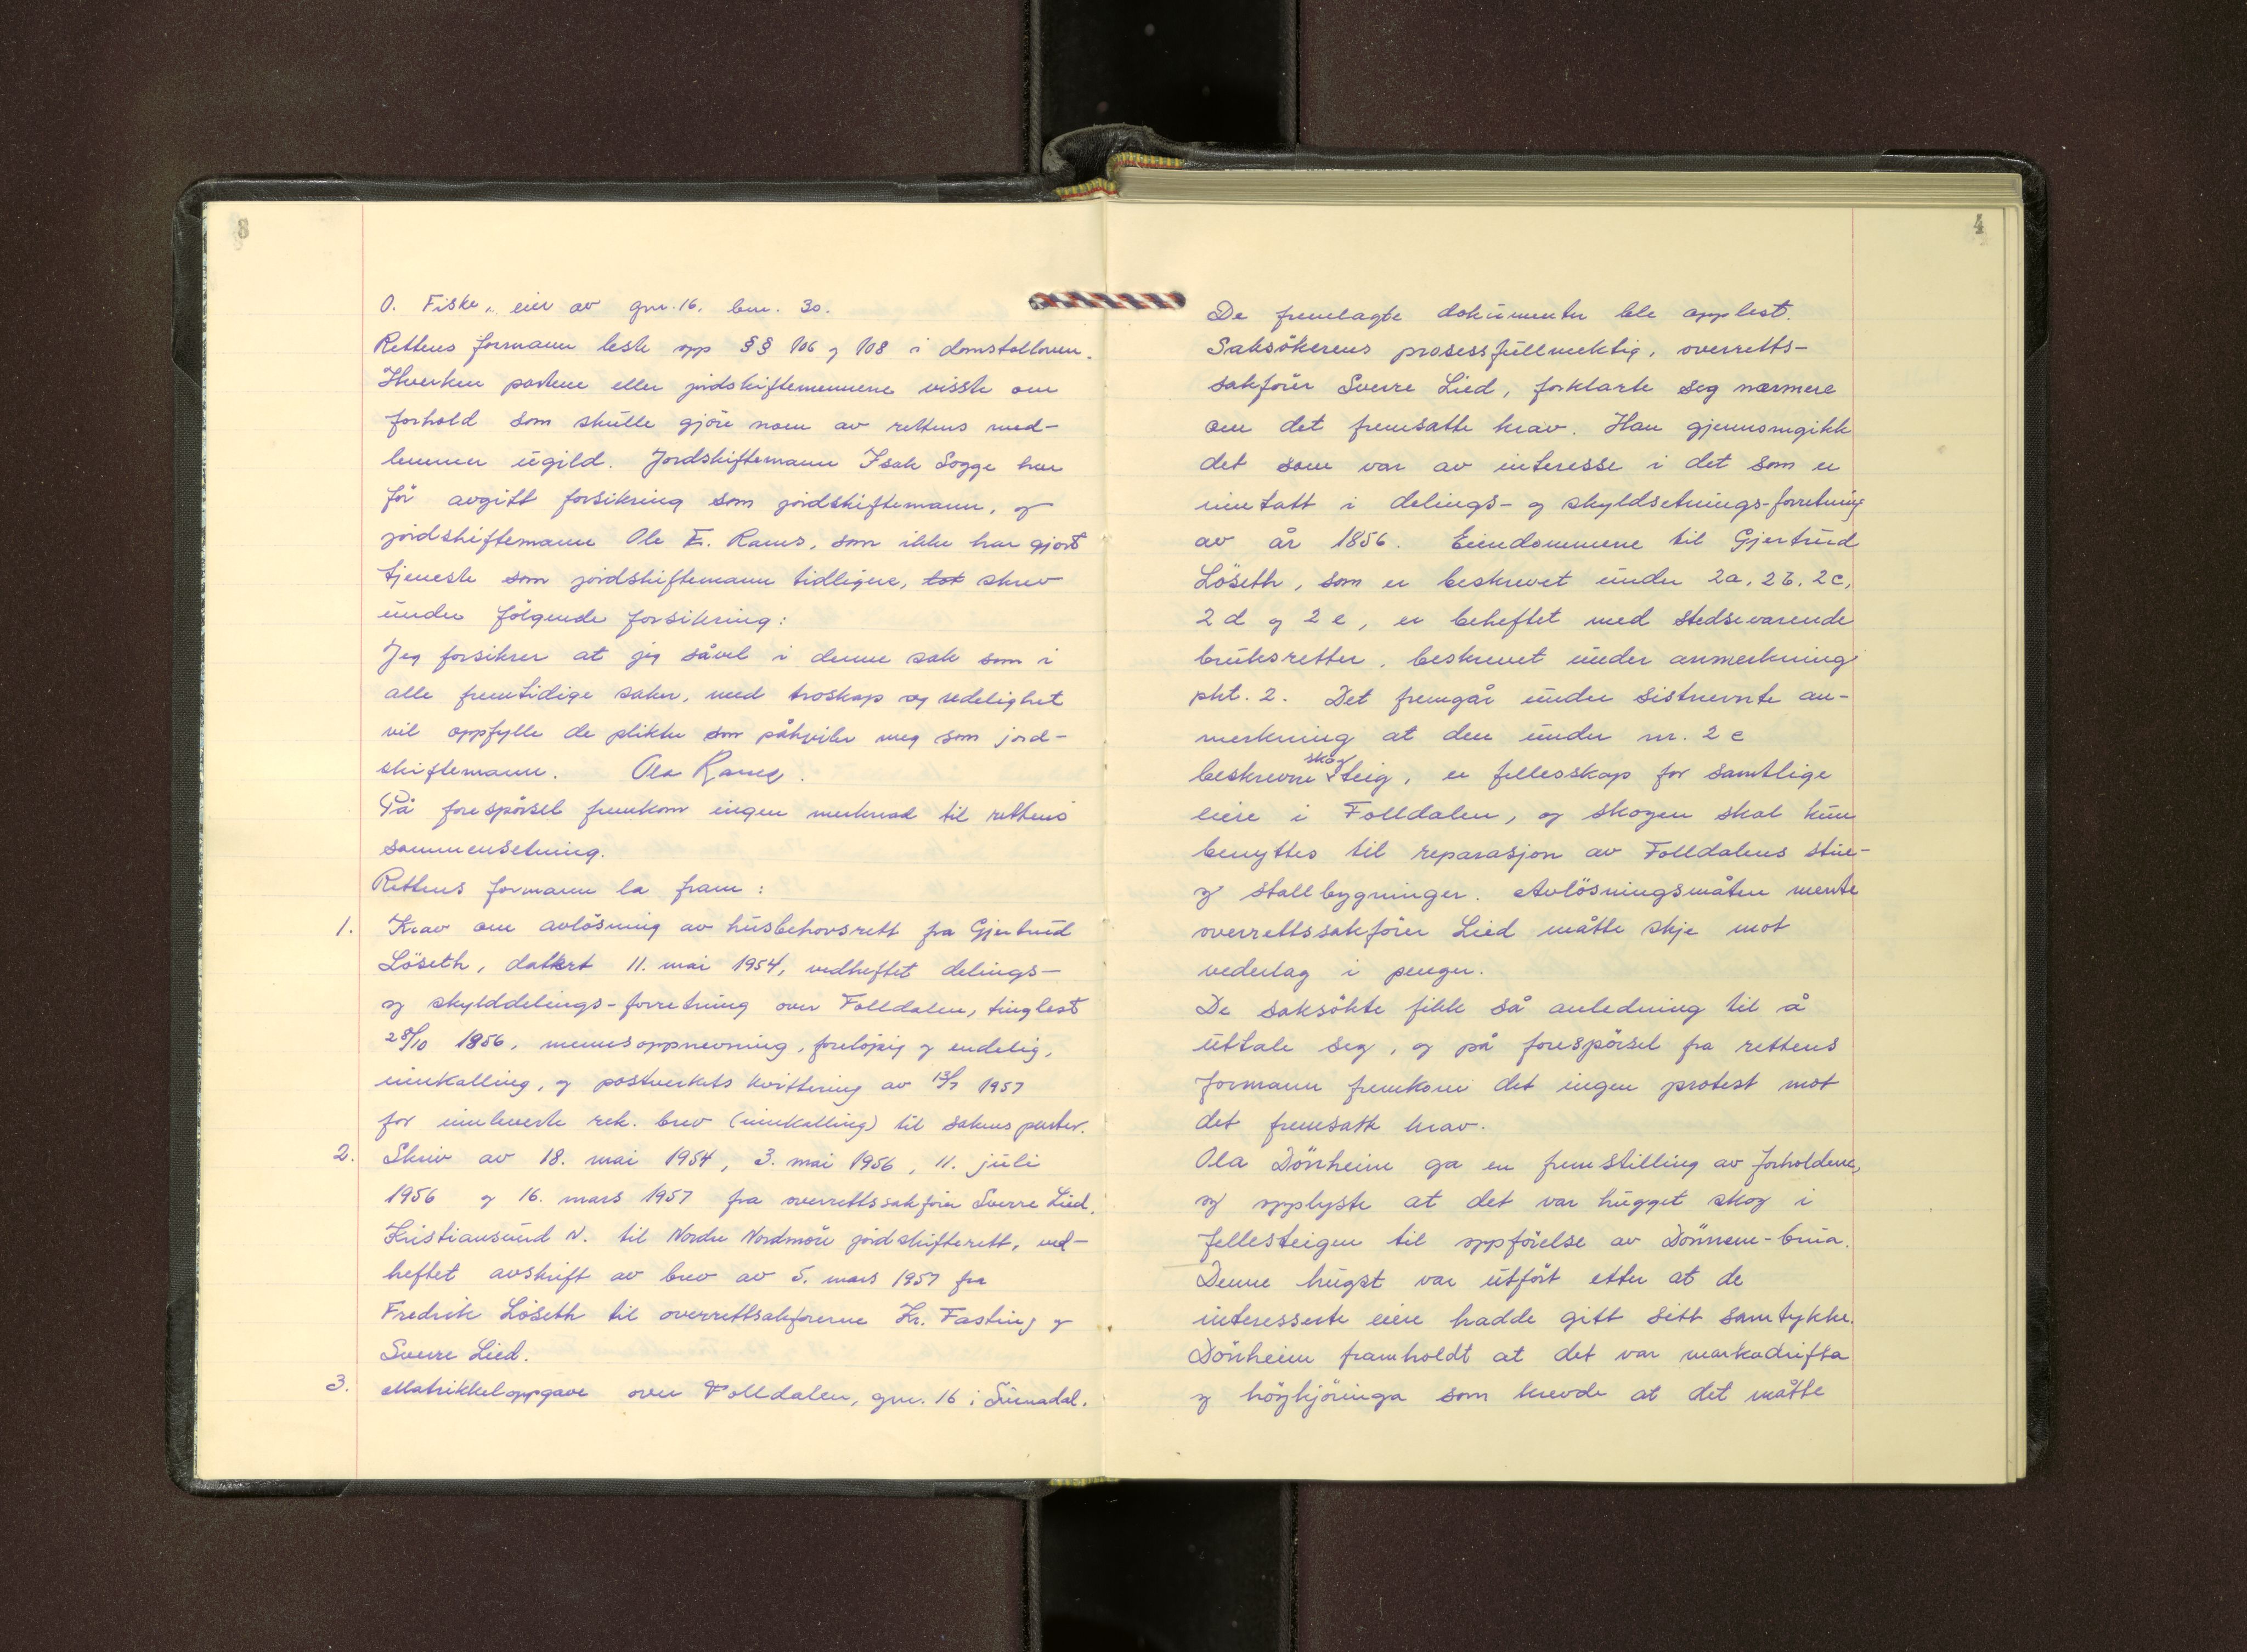 8
O. Fiske, eier av gnr. 16. bnr. 30.
Rettens formann leste opp §§ 106 og 108 i domstolloven.
Hverken partene eller jordskiftemennene visste om
forhold som skulle gjöre noen av rettens med-
lemmer ugild. Jordskiftemann Isak Sogge har
för avgitt forsikring som jordskiftemann, og
jordskiftemann Ole E. Rams, som ikke har gjort
tjeneste som jordskiftemann tidligere, skrev
under fölgende forsikring:
Jeg forsikrer at jeg såvel i denne sak som i
alle fremtidige saker, med troskap og redelighet
vil oppfylle de plikter som påhviler meg som jord-
skiftemann. Ola Rams.
På forespörsel fremkom ingen merknad til rettens
sammensetning.
Rettens formann la fram:
1. Krav om avlösning av husbehovsrett fra Gjertrud
Löseth, datert 11. mai 1954, vedheftet delings-
og skylddelings-forretning over Folldalen, tinglest
28/10 1856, mennsoppnevning, foreløpig og endelig,
innkalling, og postverkets kvittering av 13/7 1957
for innleverte rek. brev (innkalling) til sakens parter.
2. Skriv av 18. mai 1954, 3. mai 1956, 11. juli
1956 og 16. mars 1957 fra overrettssakförer Sverre Lied,
Kristiansund N. til Nordre Nordmöre jordskifterett, ved-
heftet avskrift av brev av 5. mars 1957 fra
Fredrik Löseth til overrettsakförerne Kr. Fasting og
Sverre Lied.
3. Matrikkeloppgave over Folldalen, gnr. 16 i Surnadal.
4
De fremlagte dokumenter ble opplest.
Saksökerens prosessfullmektig, overretts-
sakförer Sverre Lied, forklarte seg nærmere
om det fremsatte krav. Han gjennomgikk
det som var av interesse i det som er
inntatt i delings- og skyldsetnings-forretning
av år 1856. Eiendommene til Gjertrud
Löseth, som er beskrevet under 2a, 2b, 2c,
2d og 2e, er beheftet med stedsevarende
bruksretter, beskrevet under anmerkning
pkt. 2. Det fremgår under sistnevnte an-
merkning at den under nr. 2 e
skog
beskrevne steig, er fellesskap for samtlige
eiere i Folldalen, og skogen skal kun
benyttes til reparasjon av Folldalens stue-
og stallbygninger. Avlösningsmåten mente
overrettssakförer Lied måtte skje mot
vederlag i penger.
De saksökte fikk så anledning til å
uttale seg, og på forespörsel fra rettens
formann fremkom det ingen protest mot
det fremsatte krav.
Ola Dönheim ga en fremstilling av forholdene,
og opplyste at det var hugget skog i
fellesteigen til oppförelse av Dönnem-brua.
Denne hugst var utfört etter at de
interesserte eiere hadde gitt sitt samtykke.
Dönheim framholdt at det var markadrifta
og höykjöringa som krevde at det måtte